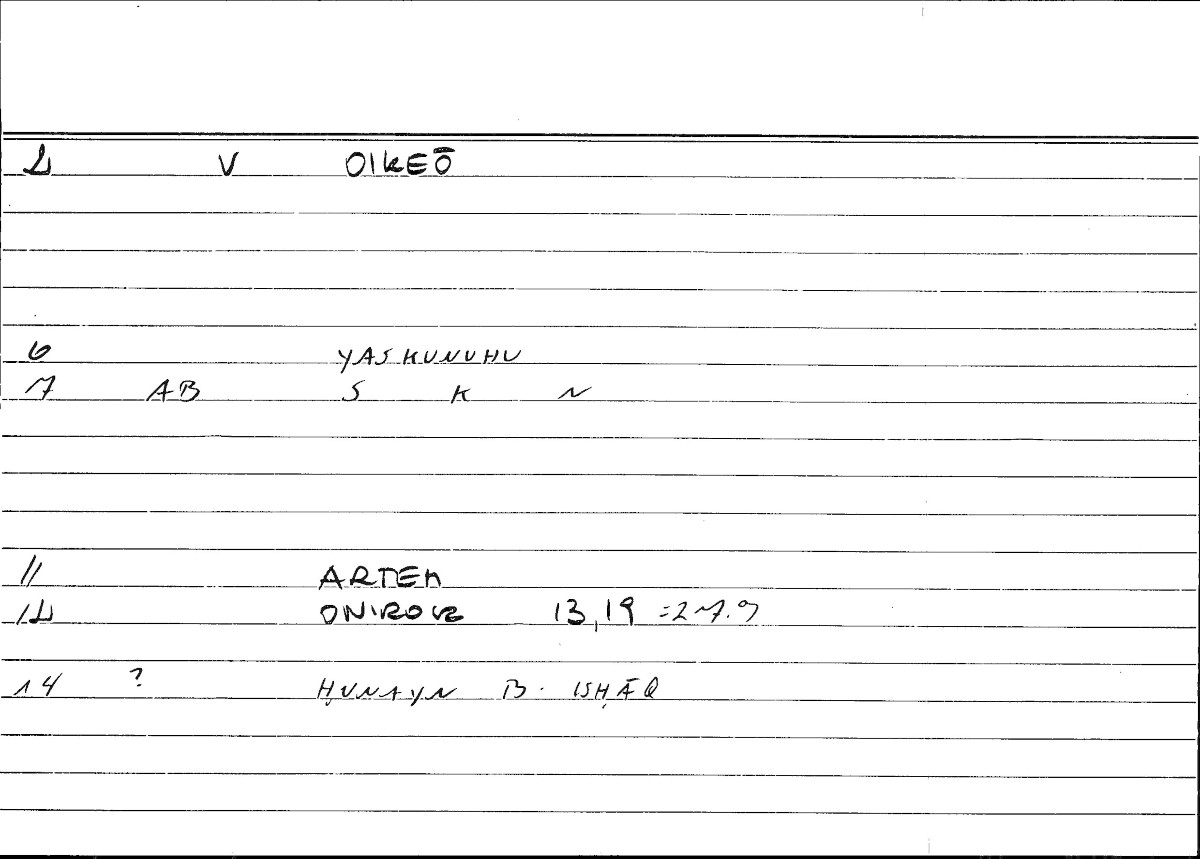 2 V OIKEŌ
6 YASKUNUHU
7 AB S K N
11 ARTEM
12 ONIROCR 13,19 =27.9
14 ? ḤUNAYN B. ISḤĀQ